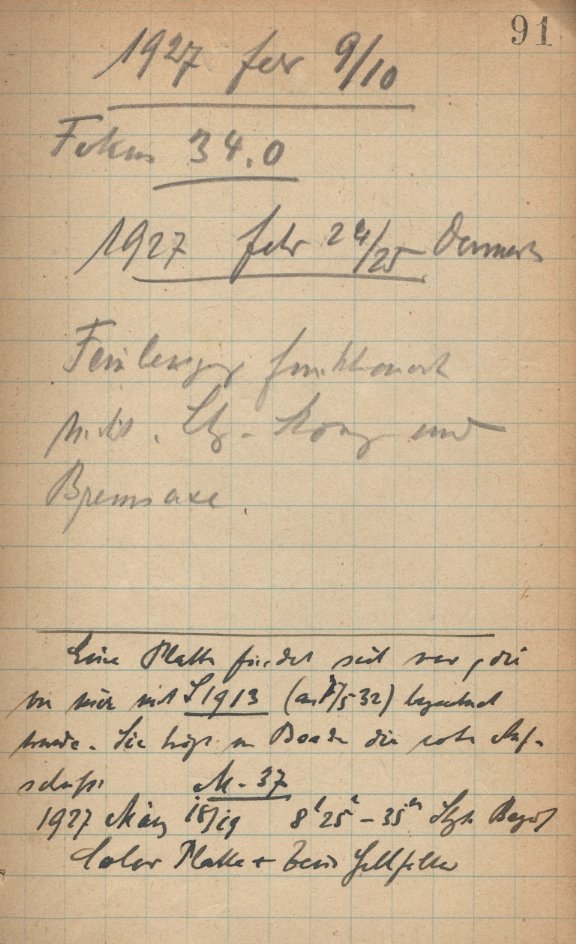 91
1927 febr 9/10
Fokus 34.0
1927 febr 24/25
funktioniert
nicht. Stg. - und
Bremsaxe
Eine Platte findet sich vor, die
von mir mit S1913 (am 5 32) bezeichnet
wurde. Sie trägt am Rande die rote Auf-
schrift M-37
1927 März 18/19 8h 25m - 35m Stgt.
Color Platte + Zeiss Gelbfilter